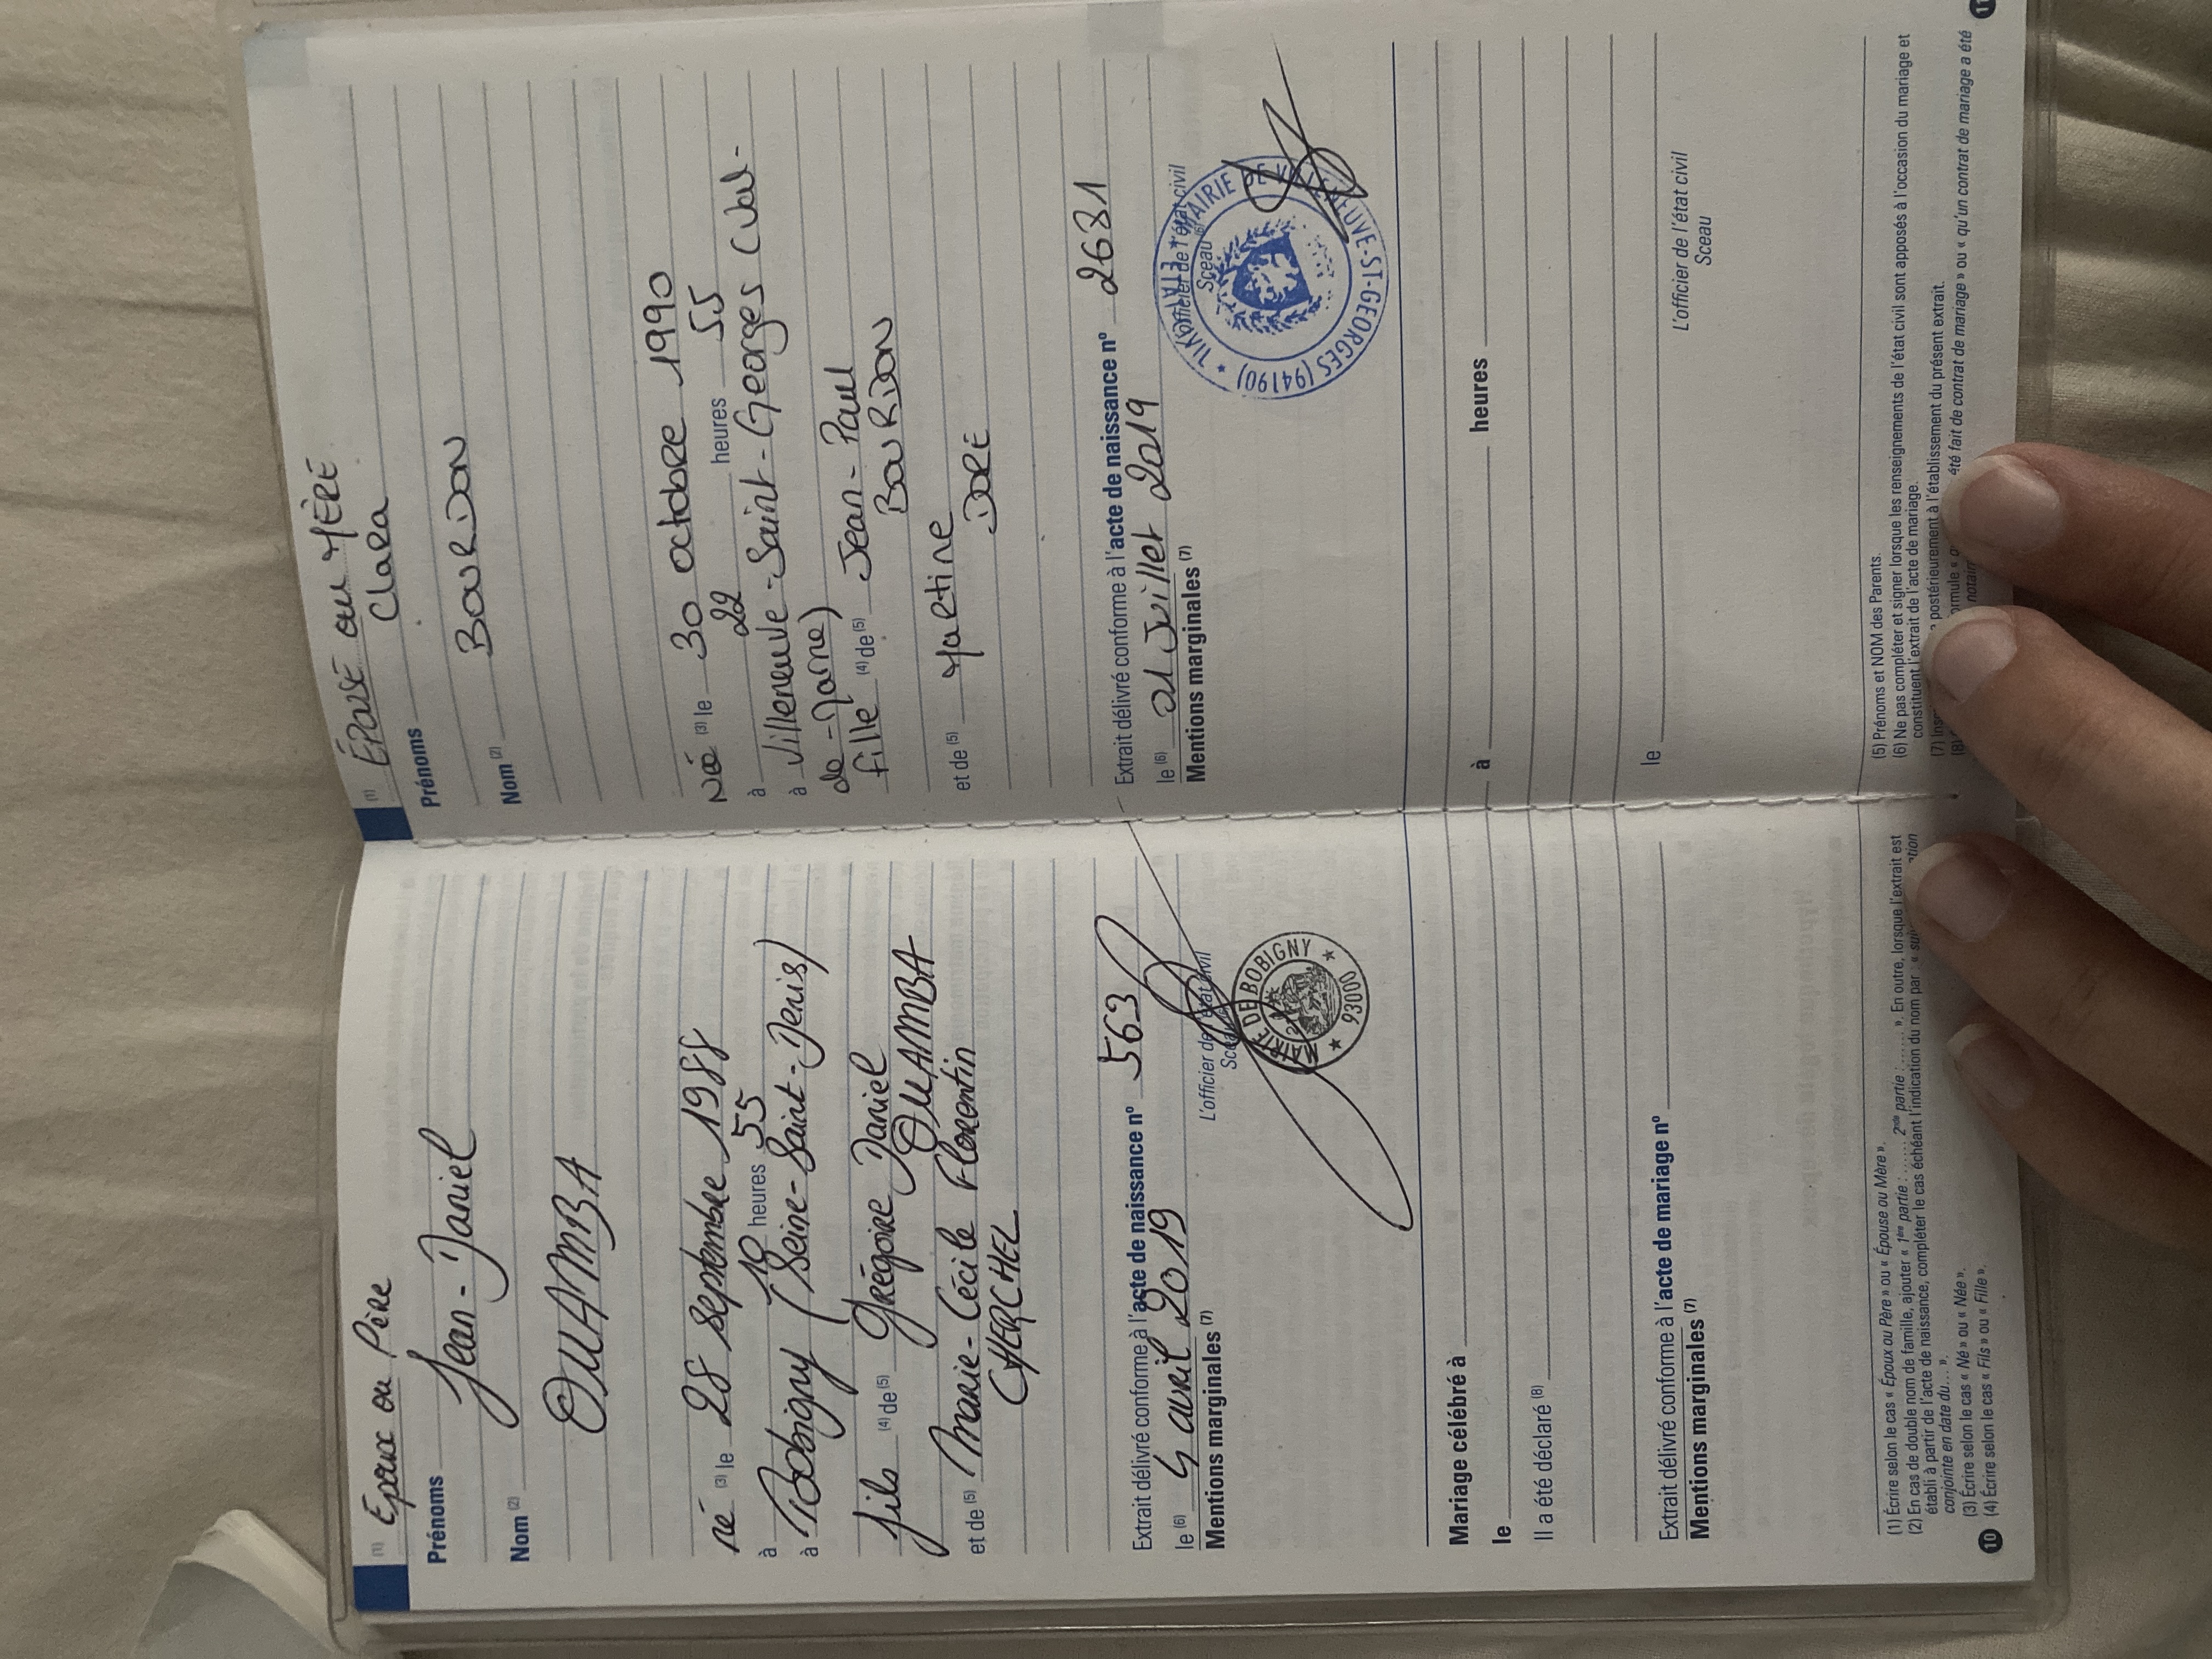 (1) Epoux ou Père
Prénoms Jean-Daniel
Nom (2)
OUAMBA
né (3) le 28 septembre 1988
à 10 heures 55
à Bobigny (Seine-Saint-Denis)
fils (4) de (5) Grégoire Daniel
OUAMBA
et de (5) Marie-Cécile Florentin
CHERCHEL
Extrait délivré conforme à l'acte de naissance nº 563
le (6) 4 avril 2019
L'officier de l'état civil
Sceau
Mentions marginales (7)
MAIRIE DE BOBIGNY
★ 93000 ★
Mariage célébré à
le
Il a été déclaré (8)
Extrait délivré conforme à l'acte de mariage nº
Mentions marginales (7)
(1) Écrire selon le cas « Époux ou Père » ou « Épouse ou Mère ».
(2) En cas de double nom de famille, ajouter « 1ère partie : ...... 2nde partie : ...... ». En outre, lorsque l'extrait est
établi à partir de l'acte de naissance, compléter le cas échéant l'indication du nom par
conjointe en date du... ».
(3) Écrire selon le cas « Né » ou « Née ».
(4) Écrire selon le cas « Fils » ou « Fille ».
10
(1) ÉPOUSE ou MÈRE
Prénoms Clara
Nom (2) BOURDON
Née (3) le 30 octobre 1990
à 22 heures 55
à Villeneuve-Saint-Georges (Val-
de-Marne)
fille (4) de (5) Jean-Paul
BOURDON
et de (5) Martine
DORE
Extrait délivré conforme à l'acte de naissance nº 2681
le (6) 01 Juillet 2019
L'officier de l'état civil
Sceau (6)
Mentions marginales (7)
MAIRIE DE VILLENEUVE-ST-GEORGES (94190) ★ ETAT CIVIL ★
à heures
le
L'officier de l'état civil
Sceau
(5) Prénoms et NOM des Parents.
(6) Ne pas compléter et signer lorsque les renseignements de l'état civil sont apposés à l'occasion du mariage et
constituent l'extrait de l'acte de mariage.
(7) postérieurement à l'établissement du présent extrait.
(8) été fait de contrat de mariage » ou « qu'un contrat de mariage a été
11